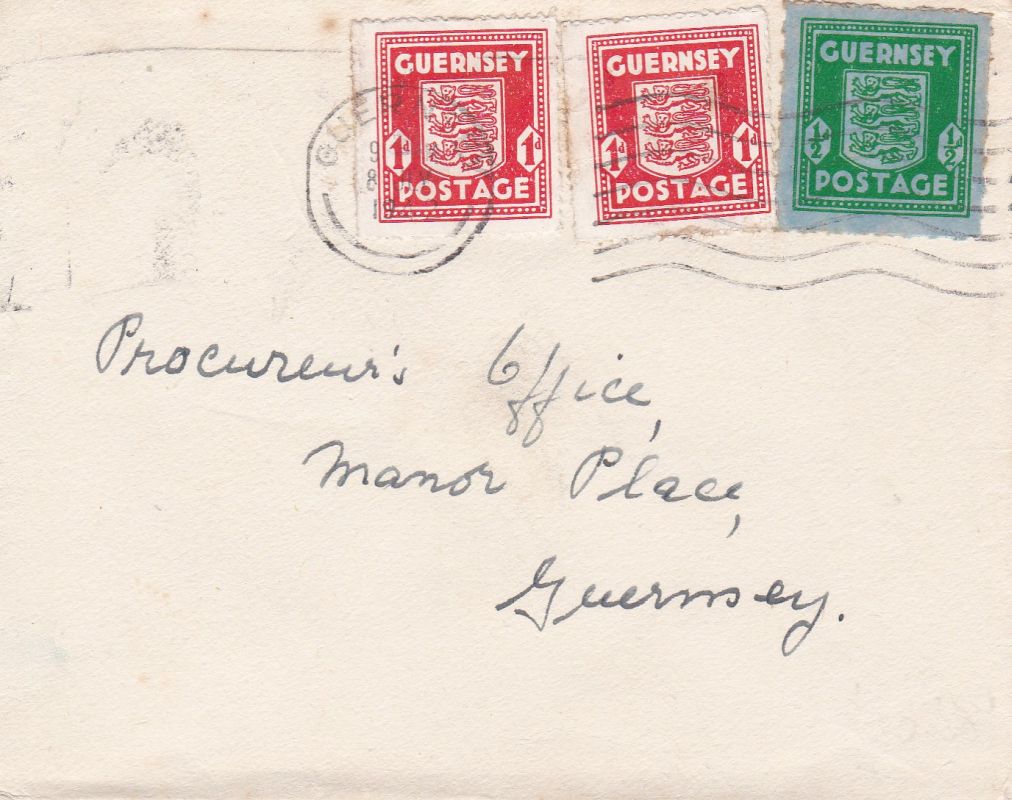 GUERNSEY
1d 1d
POSTAGE
GUERNSEY
1d 1d
POSTAGE
GUERNSEY
½d ½d
POSTAGE
Procureur's Office,
Manor Place,
Guernsey.